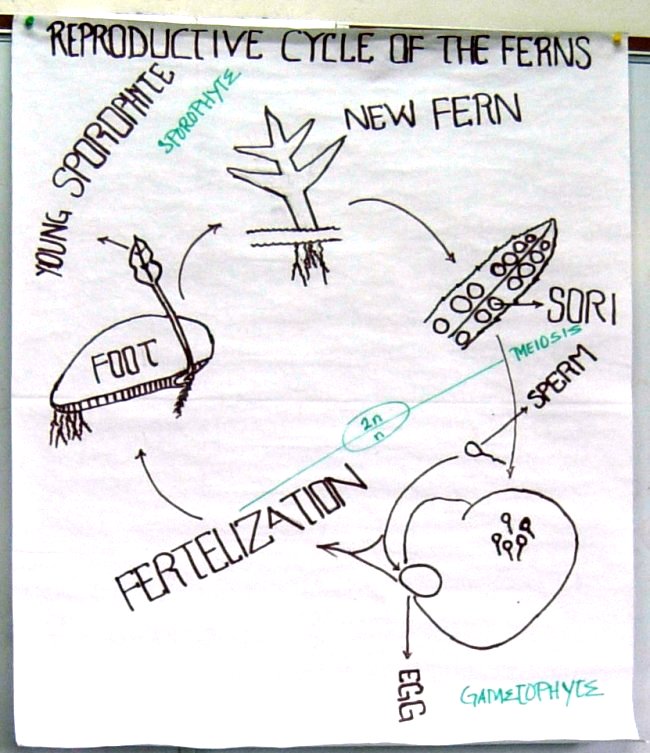 REPRODUCTIVE CYCLE OF THE FERNS
YOUNG SPOROPHITE
SPOROPHYTE
NEW FERN
SORI
MEIOSIS
FOOT
SPERM
2n
n
FERTELIZATION
EGG
GAMETOPHYTE